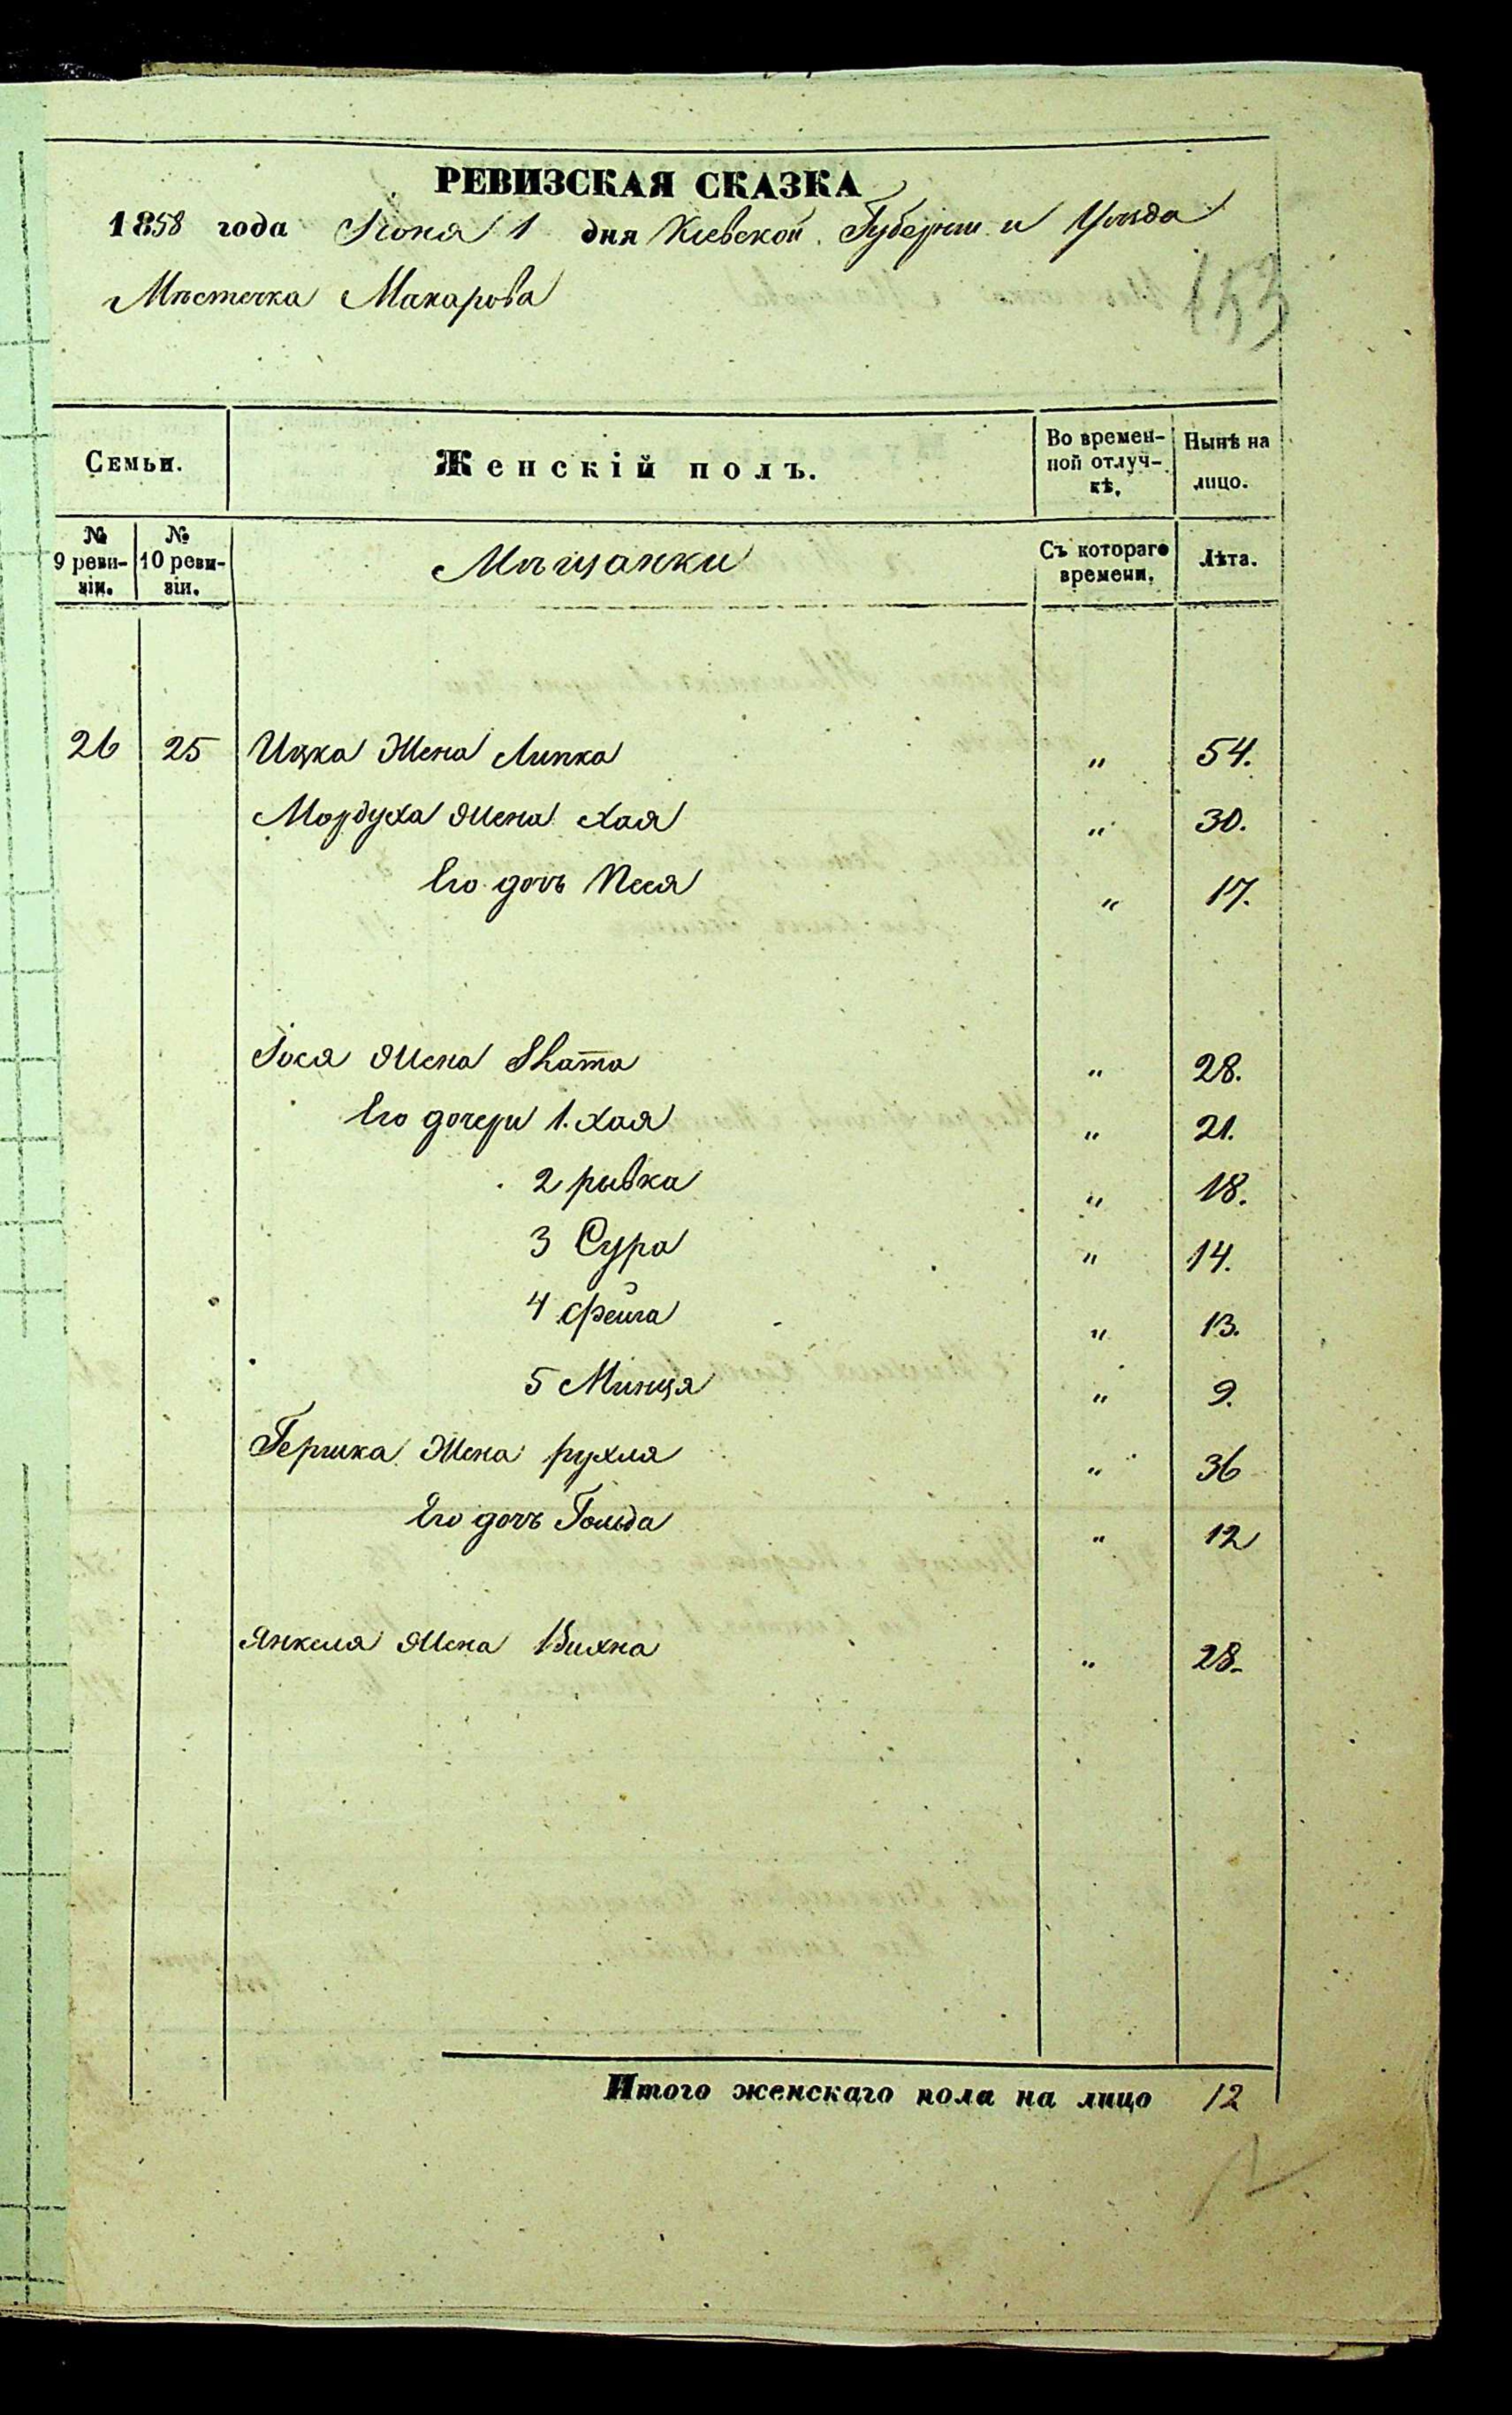 РЕВИЗСКАЯ СКАЗКА
1858 года Іюня 1 дня Кіевской Губерніи и Уѣзда
Мѣстечка Макарова
153
Семьи. Женскій полъ. Во времен-ной отлуч-кѣ. Нынѣ на лицо.
№ 9 реви-зіи. № 10 реви-зіи. Мѣщанки Съ котораго времени. Лѣта.
26 25 Ицка Жена Липка " 54.
Мордуха жена Хая " 30.
Его дочь Песя " 17.
Іося жена " 28.
Его дочери 1. Хая " 21.
2 рывка " 18.
3 Сура " 14.
4 Фейга " 13.
5 Минця " 9.
Гершка Жена рухля " 36
Его дочь Гольда " 12
Янкеля жена Вихна " 28.
Итого женскаго пола на лицо 12